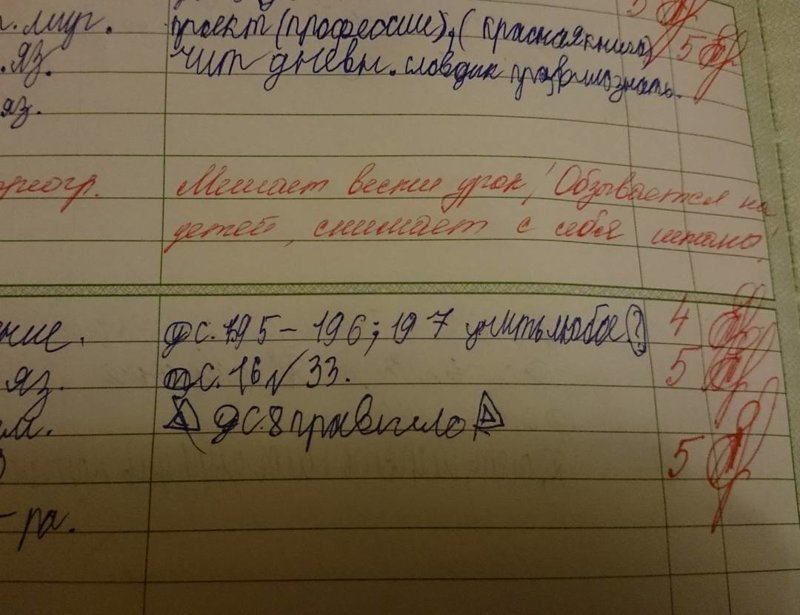 . мир. проект (профессии), (красная книга) 5
. яз. чит дневн. словдик правилознать. 5
яз.
реогр. Мешает вести урок! Обзывается на
детей, снимает с себя штаны!
ние. у с. 195 – 196; 197 учить любое (?) 4
яз. с. 16 √ 33. 5
м. у с. 8 правило
5
- ра.